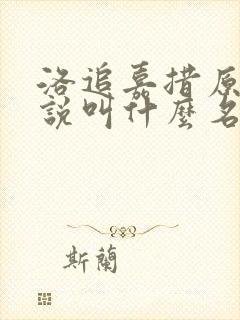 洛追嘉措原
說叫什麼名
斯蘭